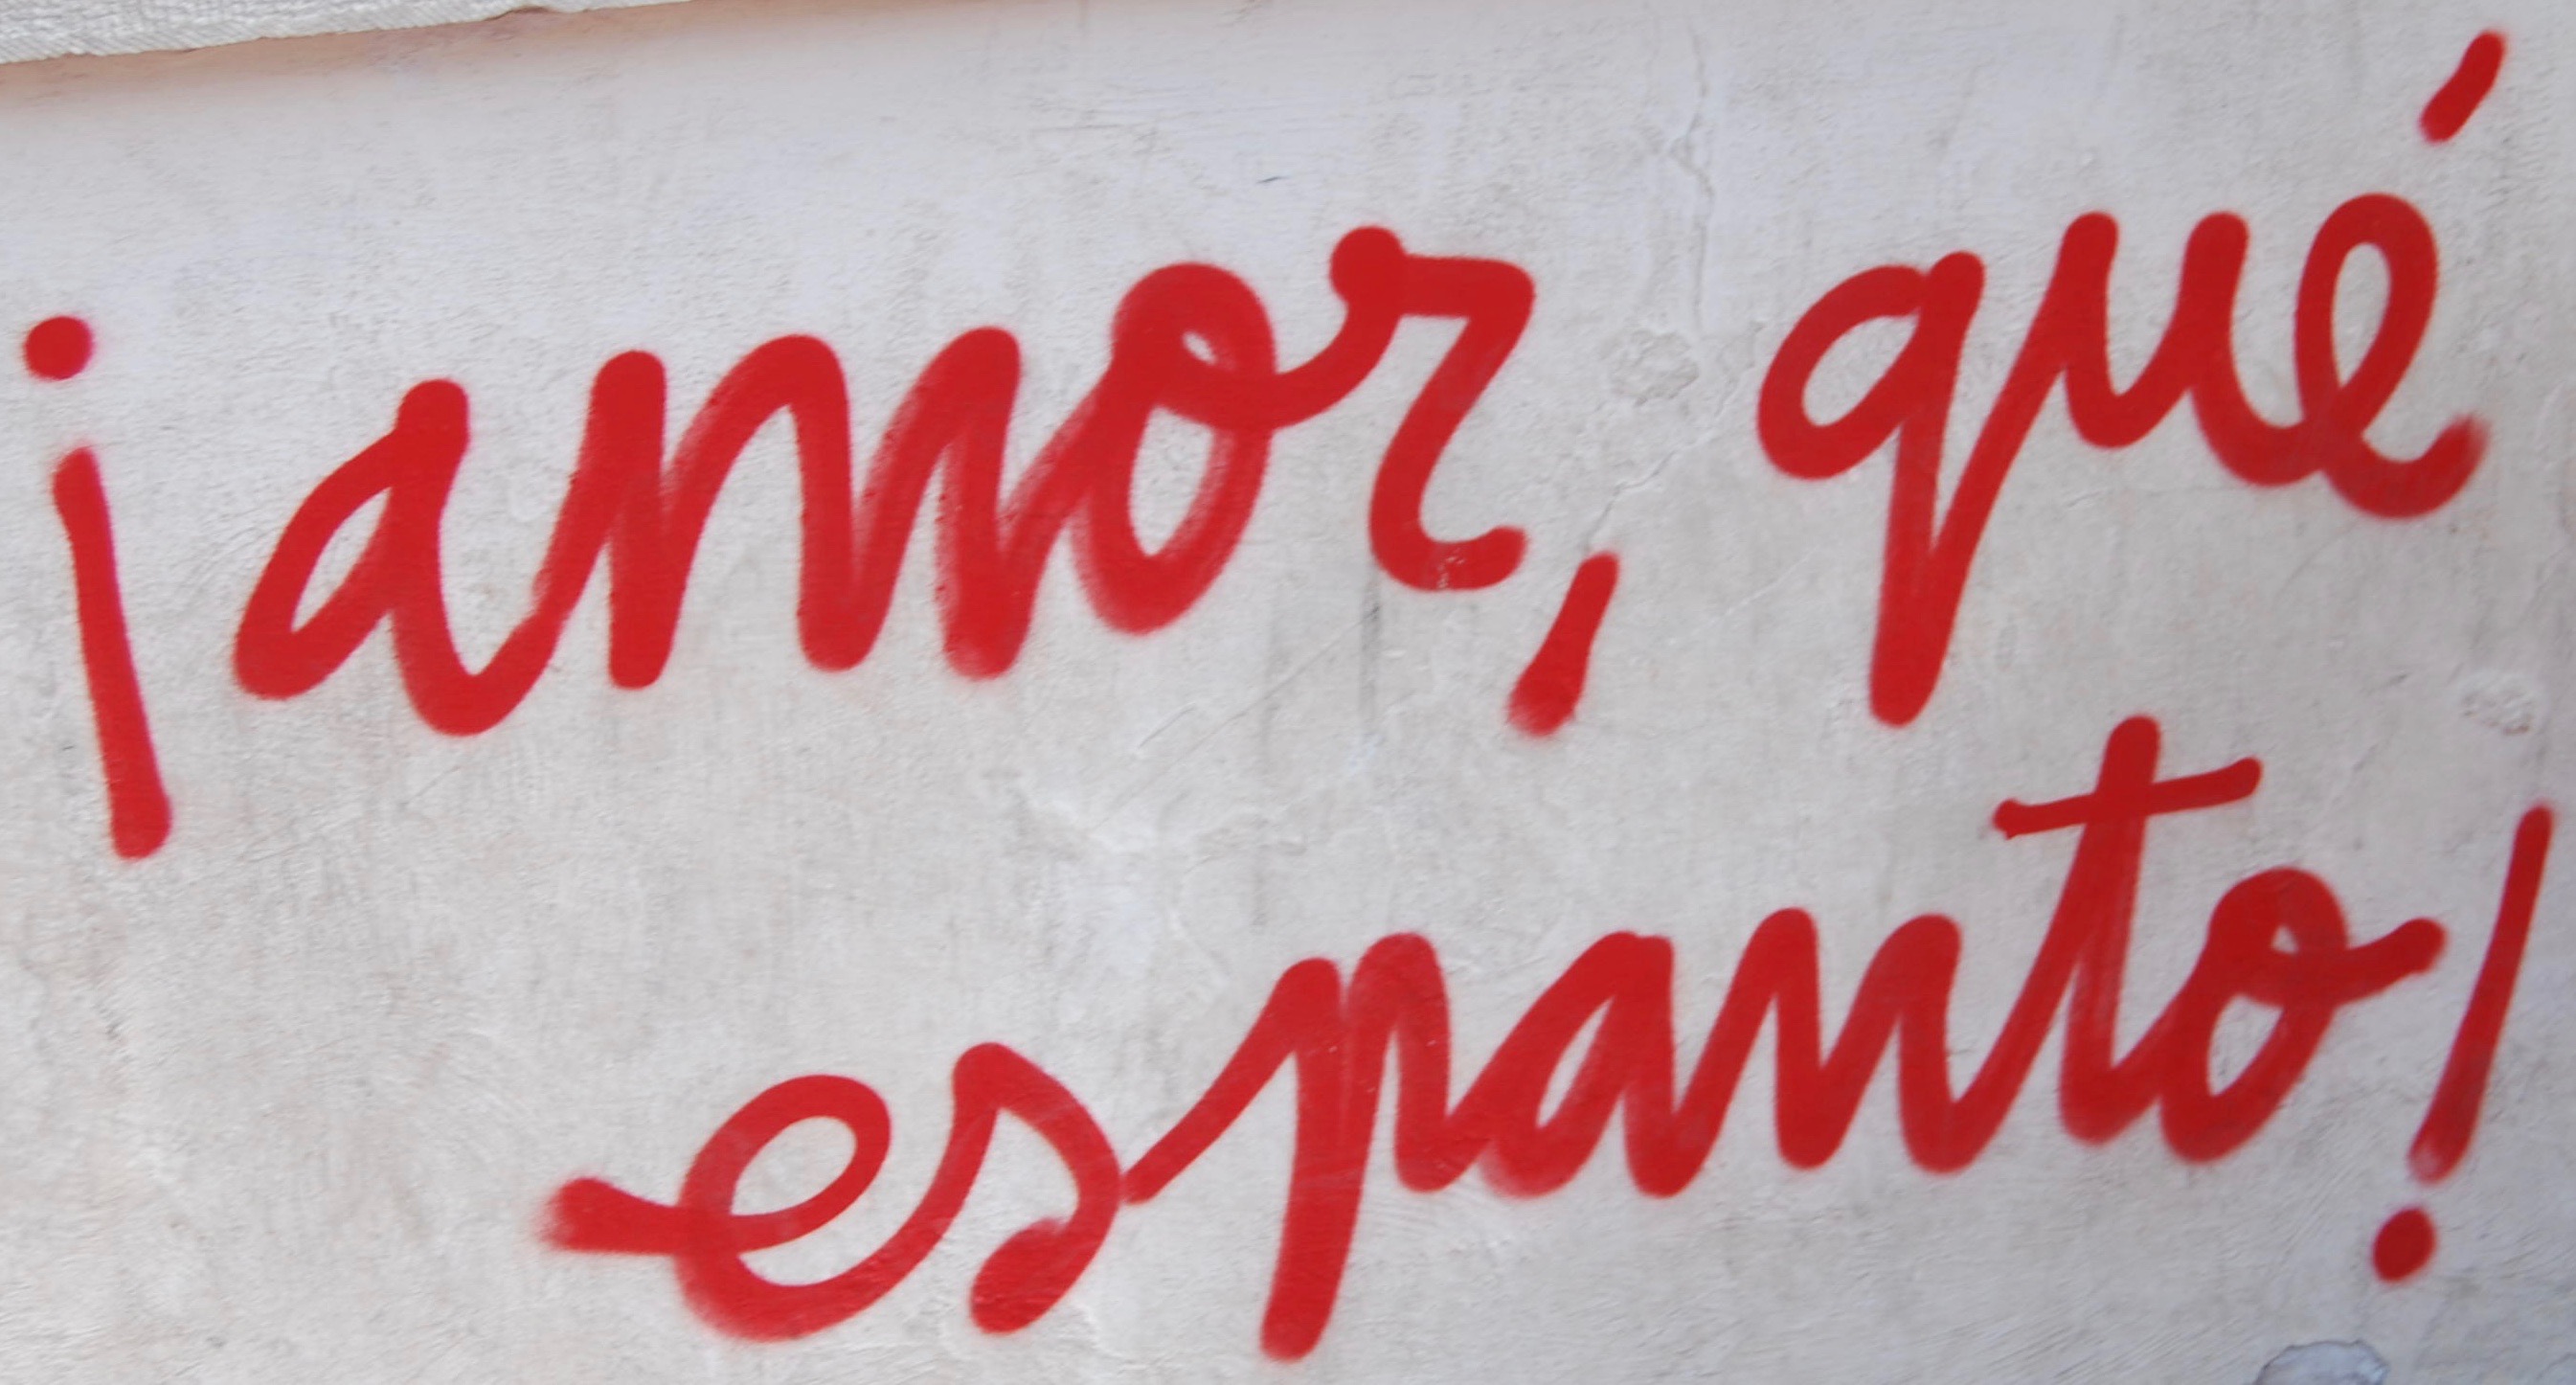 ¡amor, qué
espanto!